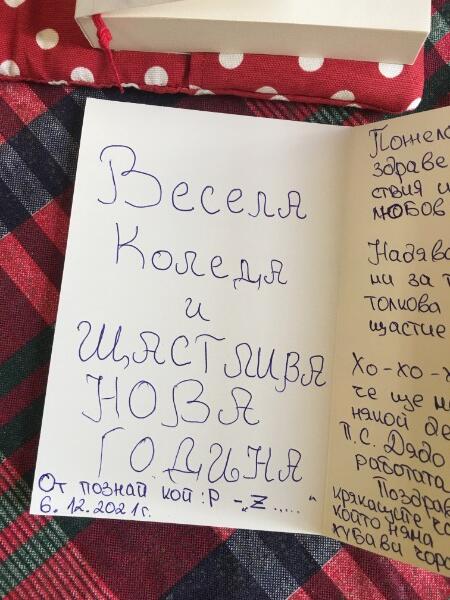 Весела
Коледа
и
ЩАСТЛИВА
НОВА
ГОДИНА
От познай кой :P - „Z.....“
6. 12. 2021г.
здраве
ствия и
любов
ни за
толкова
щастие
Хо-хо-
че ще
някой
П.С. Дядо
работата
крякащите
който няма
хубави